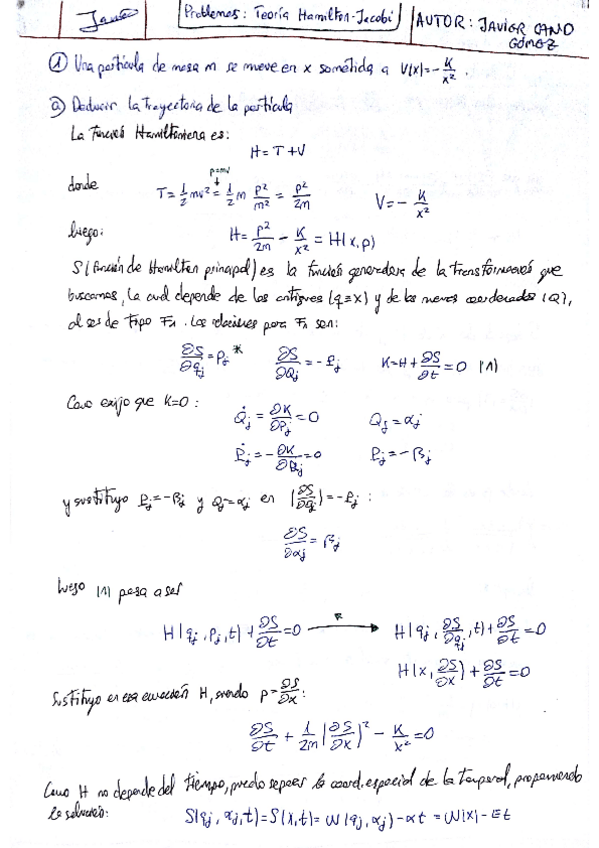 Problemas: Teoría Hamilton-Jacobi
AUTOR: JAVIER CANO GÓMEZ
① Una partícula de masa m se mueve en x sometida a V(x)=-K/x².
ⓐ Deducir la trayectoria de la partícula
La función Hamiltoniana es:
H=T+V
donde
p=mv
T=1/2 mv²=1/2 m p²/m²=p²/2m    V=-K/x²
luego:
H=p²/2m - K/x² = H(x,p)
S (función de Hamilton principal) es la función generadora de la transformación que
buscamos, la cual depende de las antiguas (q≡x) y de las nuevas coordenadas (Q),
al ser de tipo F₁. Las relaciones para F₁ son:
∂S/∂qj=pj *    ∂S/∂Qj=-Pj    K=H+∂S/∂t=0 (1)
Como exijo que K=0:
Q̇j=∂K/∂Pj=0    Qj=αj
Ṗj=-∂K/∂Qj=0    Pj=-βj
y sustituyo Pj=-βj y Qj=αj en (∂S/∂Qj)=-Pj:
∂S/∂αj=βj
luego (1) pasa a ser
H(qj,pj,t)+∂S/∂t=0 → * H(qj,∂S/∂qj,t)+∂S/∂t=0
H(x,∂S/∂x)+∂S/∂t=0
Sustituyo en esa ecuación H, siendo p=∂S/∂x:
∂S/∂t+1/2m(∂S/∂x)²-K/x²=0
Como H no depende del tiempo, puedo separar la coord. espacial de la temporal, proponiendo
la solución:    S(qj,αj,t)=S(x,t)=W(qj,αj)-αt=W(x)-Et